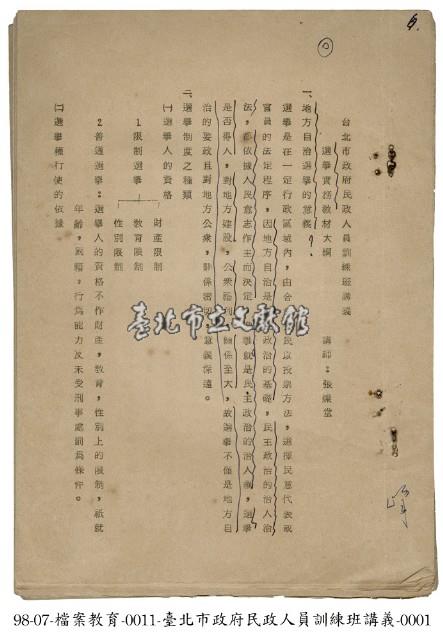 台北市政府民政人員訓練班講義
選舉實務教材大綱
講師：張
一、地方自治選舉的意義
選舉是在一定行政區域內，由合 民以投票方法，選擇民意代表或
官員的法定程序，因地方自治是 政治的基礎，民主政治的治人治
法，都依據人民意志作主而決定 舉就是民主政治的治人 ，選舉
是否得人，對地方建設，公眾福利 關係至大，故選舉不僅是地方自
治的要政且對地方公眾，關係密切 意義深遠。
二、選舉制度之種類
㈠選舉人的資格
1限制選舉
財產限制
教育限制
性別限制
2普通選舉：選舉人的資格不作財產，教育，性別上的限制，祇就
年齡，國籍，行為能力及未受刑事處罰為條件。
㈡選舉權行使的依據
臺北市立文獻館
98-07-檔案教育-0011-臺北市政府民政人員訓練班講義-0001